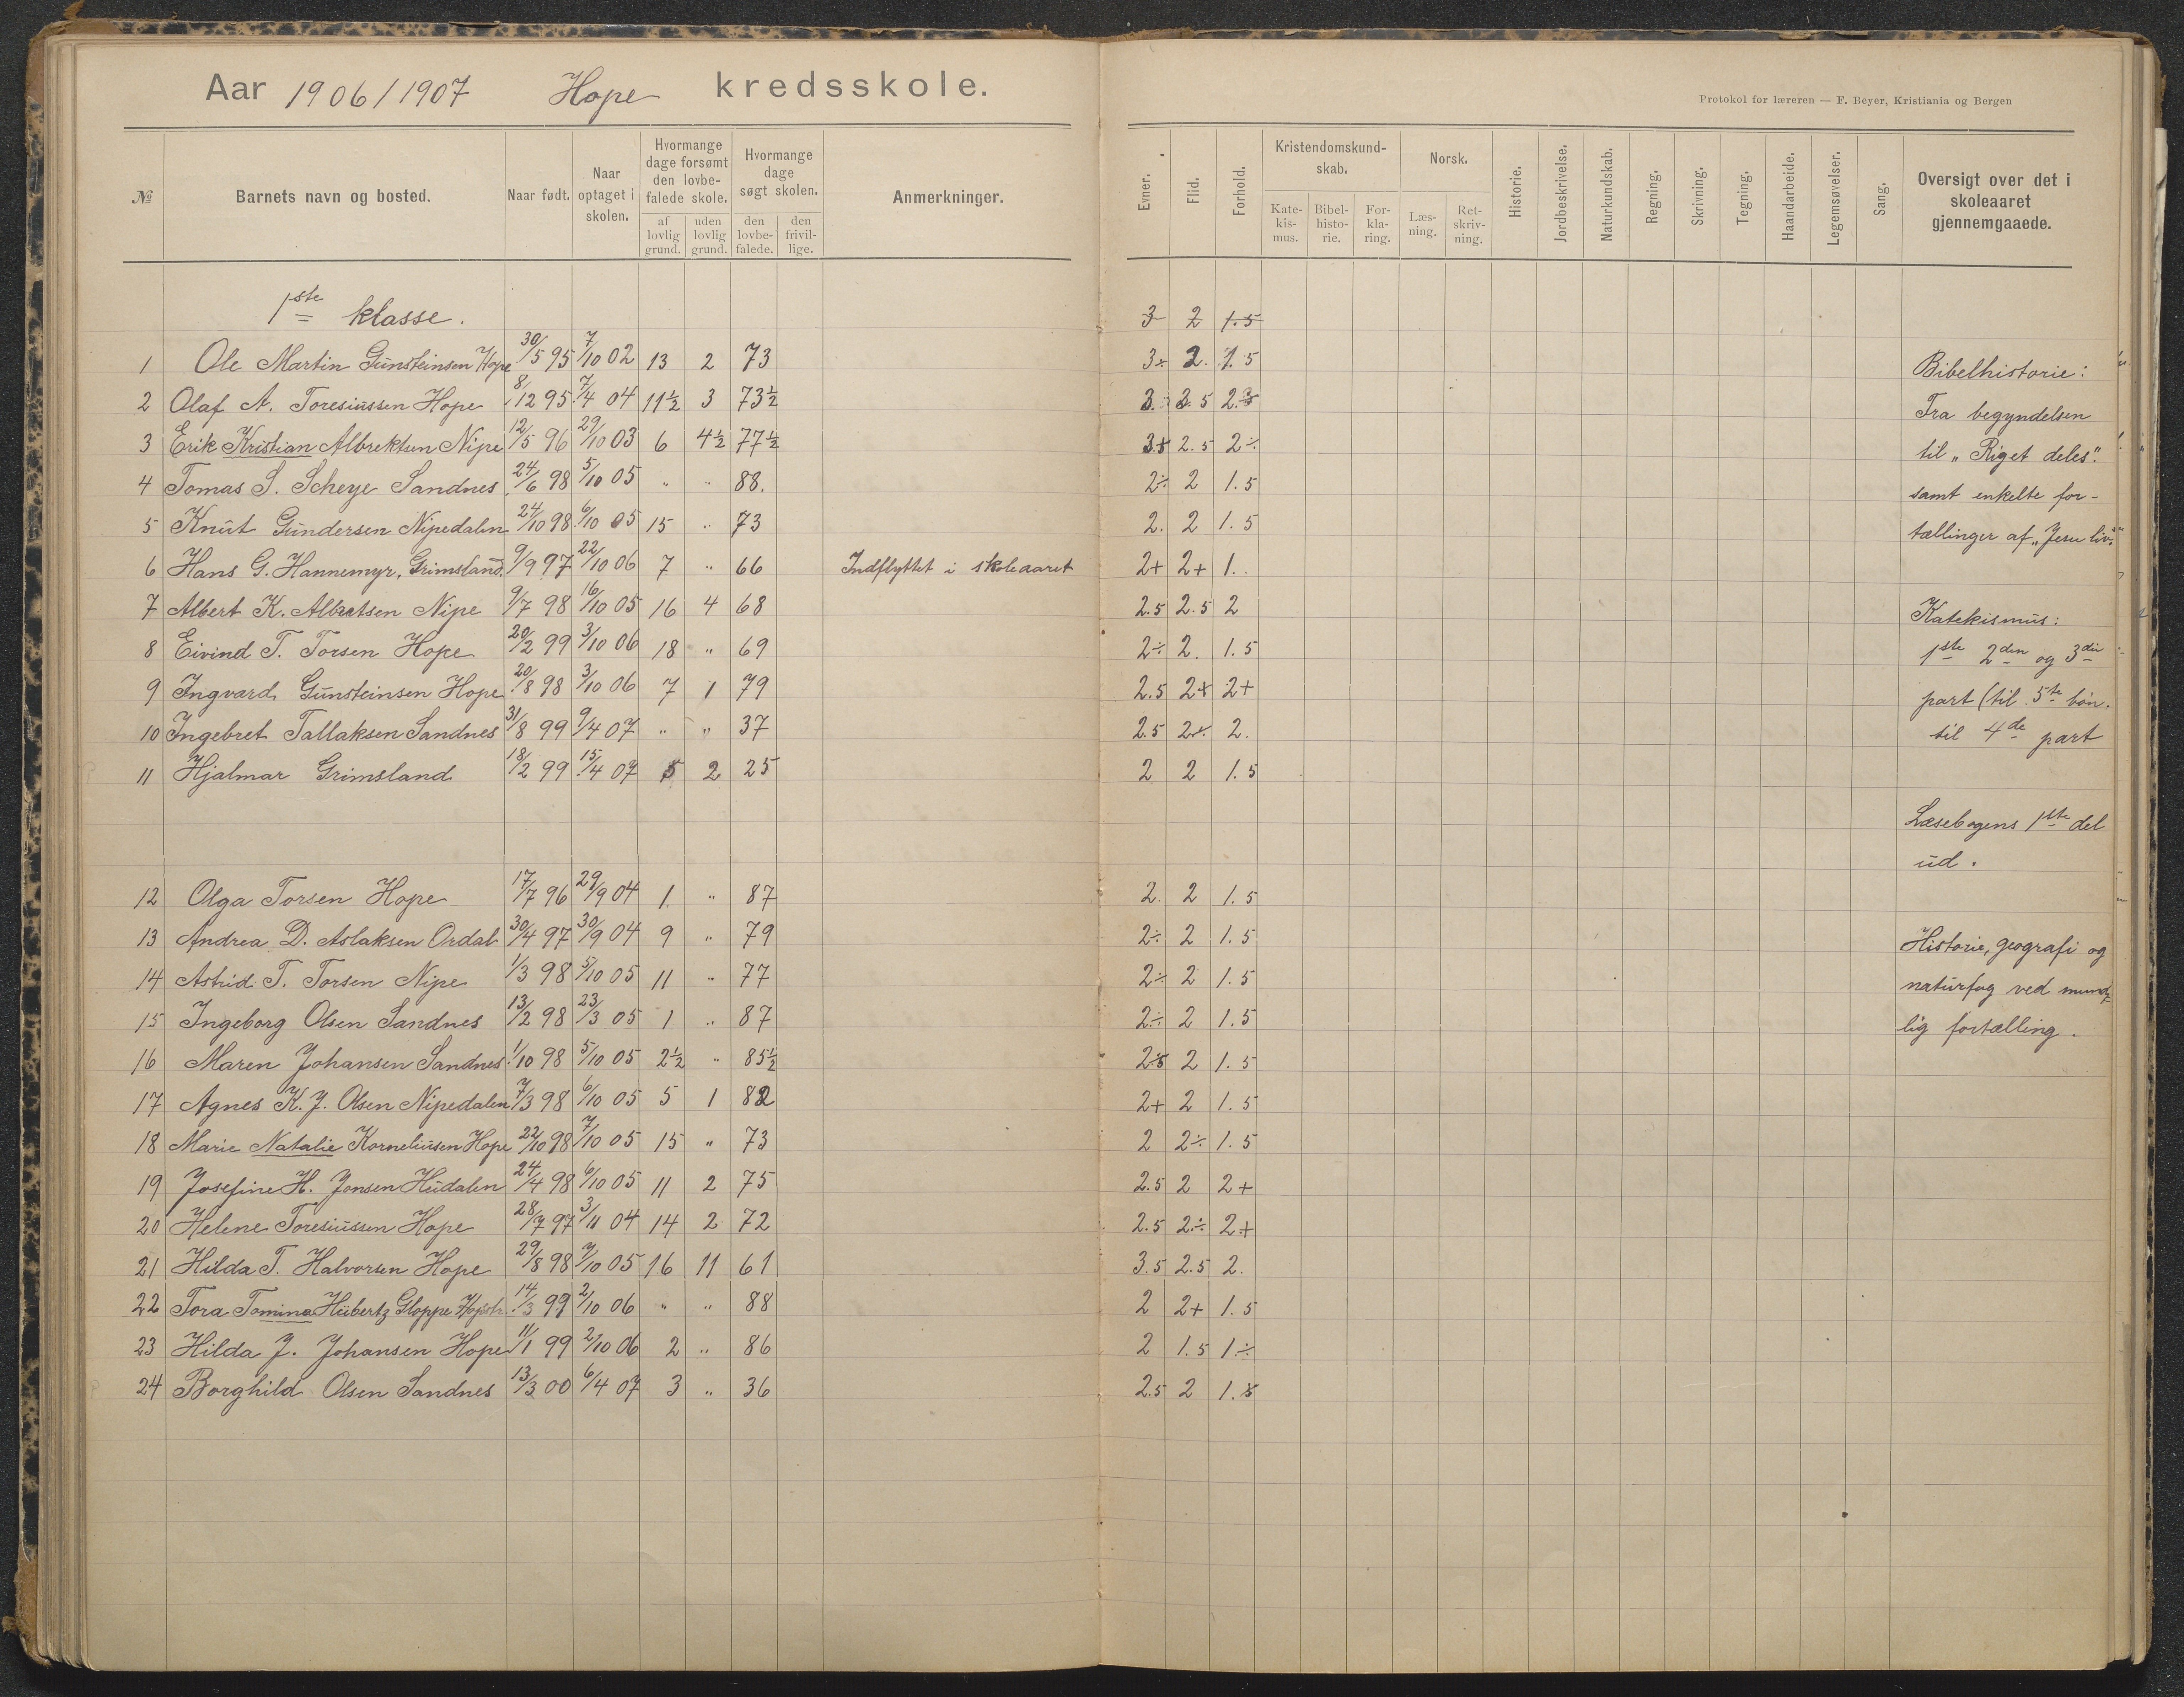 Aar 1906/1907 Hope kredsskole.
Protokol for læreren — F. Beyer, Kristiania og Bergen
№ Barnets navn og bosted. Naar født. Naar optaget i skolen. Hvormange dage forsømt den lovbefalede skole. af lovlig grund. uden lovlig grund. Hvormange dage søgt skolen. den lovbefalede. den frivillige. Anmerkninger.
Evner. Flid. Forhold. Kristendomskundskab. Katekismus. Bibelhistorie. Forklaring. Norsk. Læsning. Retskrivning. Historie. Jordbeskrivelse. Naturkundskab. Regning. Skrivning. Tegning. Haandarbeide. Legemsøvelser. Sang. Oversigt over det i skoleaaret gjennemgaaede.
1ste klasse. 3 2 1.5
1 Ole Martin Gunsteinsen Hope 30/5 95 7/10 02 13 2 73 3÷ 2. 1.5
2 Olaf A. Toresiussen Hope 8/12 95 7/4 04 11½ 3 73½ 3. 2.5
3 Erik Kristian Albrektsen Nipe 12/5 96 29/10 03 6 4½ 77½ 2.5 2÷
4 Tomas S. Scheye Sandnes 24/6 98 5/10 05 " " 88. 2÷ 2 1.5
5 Knut Gundersen Nipedalen 24/10 98 6/10 05 15 " 73 2. 2 1.5
6 Hans G. Hannemyr, Grimsland. 9/9 97 22/10 06 7 " 66 Indflyttet i skoleaaret 2+ 2+ 1.
7 Albert K. Albretsen Nipe 9/7 98 16/10 05 16 4 68 2.5 2.5 2
8 Eivind T. Torsen Hope 20/2 99 3/10 06 18 " 69 2÷ 2. 1.5
9 Ingvard Gunsteinsen Hope 20/8 98 3/10 06 7 1 79 2.5 2+ 2+
10 Ingebret Tallaksen Sandnes 31/8 99 9/4 07 " " 37 2.5 2÷ 2.
11 Hjalmar Grimsland 18/2 99 15/4 07 5 2 25 2 2 1.5
12 Olga Torsen Hope 17/7 96 29/9 04 1 " 87 2. 2 1.5
13 Andrea D. Aslaksen Ordal 30/4 97 30/9 04 9 " 79 2÷ 2 1.5
14 Astrid T. Torsen Nipe 1/3 98 5/10 05 11 " 77 2÷ 2 1.5
15 Ingeborg Olsen Sandnes 13/2 98 23/3 05 1 " 87 2÷ 2 1.5
16 Maren Johansen Sandnes 1/10 98 5/10 05 2½ " 85½ 2 1.5
17 Agnes K. J. Olsen Nipedalen 7/3 98 6/10 05 5 1 82 2+ 2 1.5
18 Marie Natalie Korneliusen Hope 22/10 98 7/10 05 15 " 73 2 2÷ 1.5
19 Josefine H. Jonsen Hudalen 24/4 98 6/10 05 11 2 75 2.5 2 2+
20 Helene Toresiussen Hope 28/7 97 3/11 04 14 2 72 2.5 2÷ 2+
21 Hilda T. Halvorsen Hope 29/8 98 7/10 05 16 11 61 3.5 2.5 2.
22 Tora Tomina Hübertz Gloppe 14/3 99 2/10 06 " " 88 2 2+ 1.5
23 Hilda J. Johansen Hope 11/1 99 2/10 06 2 " 86 2 1.5 1÷
24 Borghild Olsen Sandnes 13/3 00 6/4 07 3 " 36 2.5 2 1.5
Bibelhistorie:
Fra begyndelsen
til „Riget deles".
samt enkelte for-
tællinger af „Jesu liv".
Katekismus:
1ste 2den og 3die
part (til 5te bøn.
til 4de part
Læsebogens 1ste del
ud.
Historie, geografi og
naturfag ved mund-
lig fortælling.